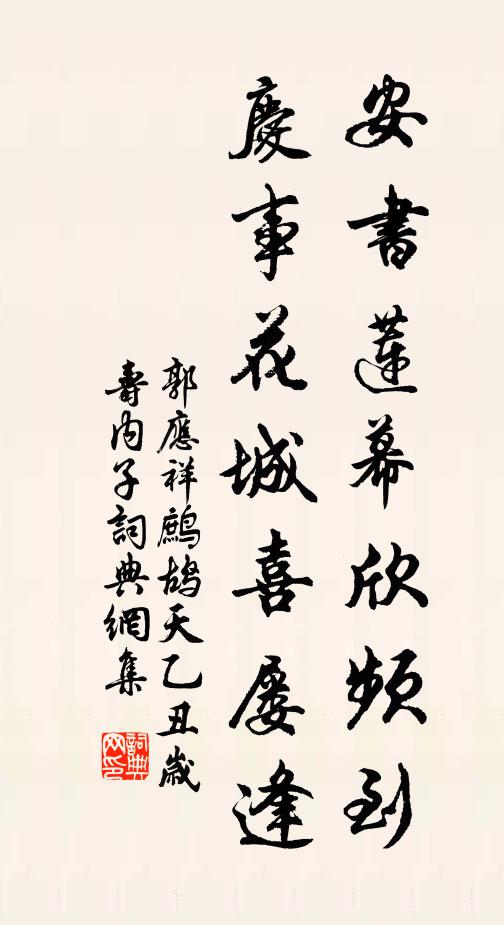 安書蓮幕欣頻到
慶事花城喜屢逢
郭應祥鷓鴣天乙丑歲
壽內子詞典網集
詞典
网印